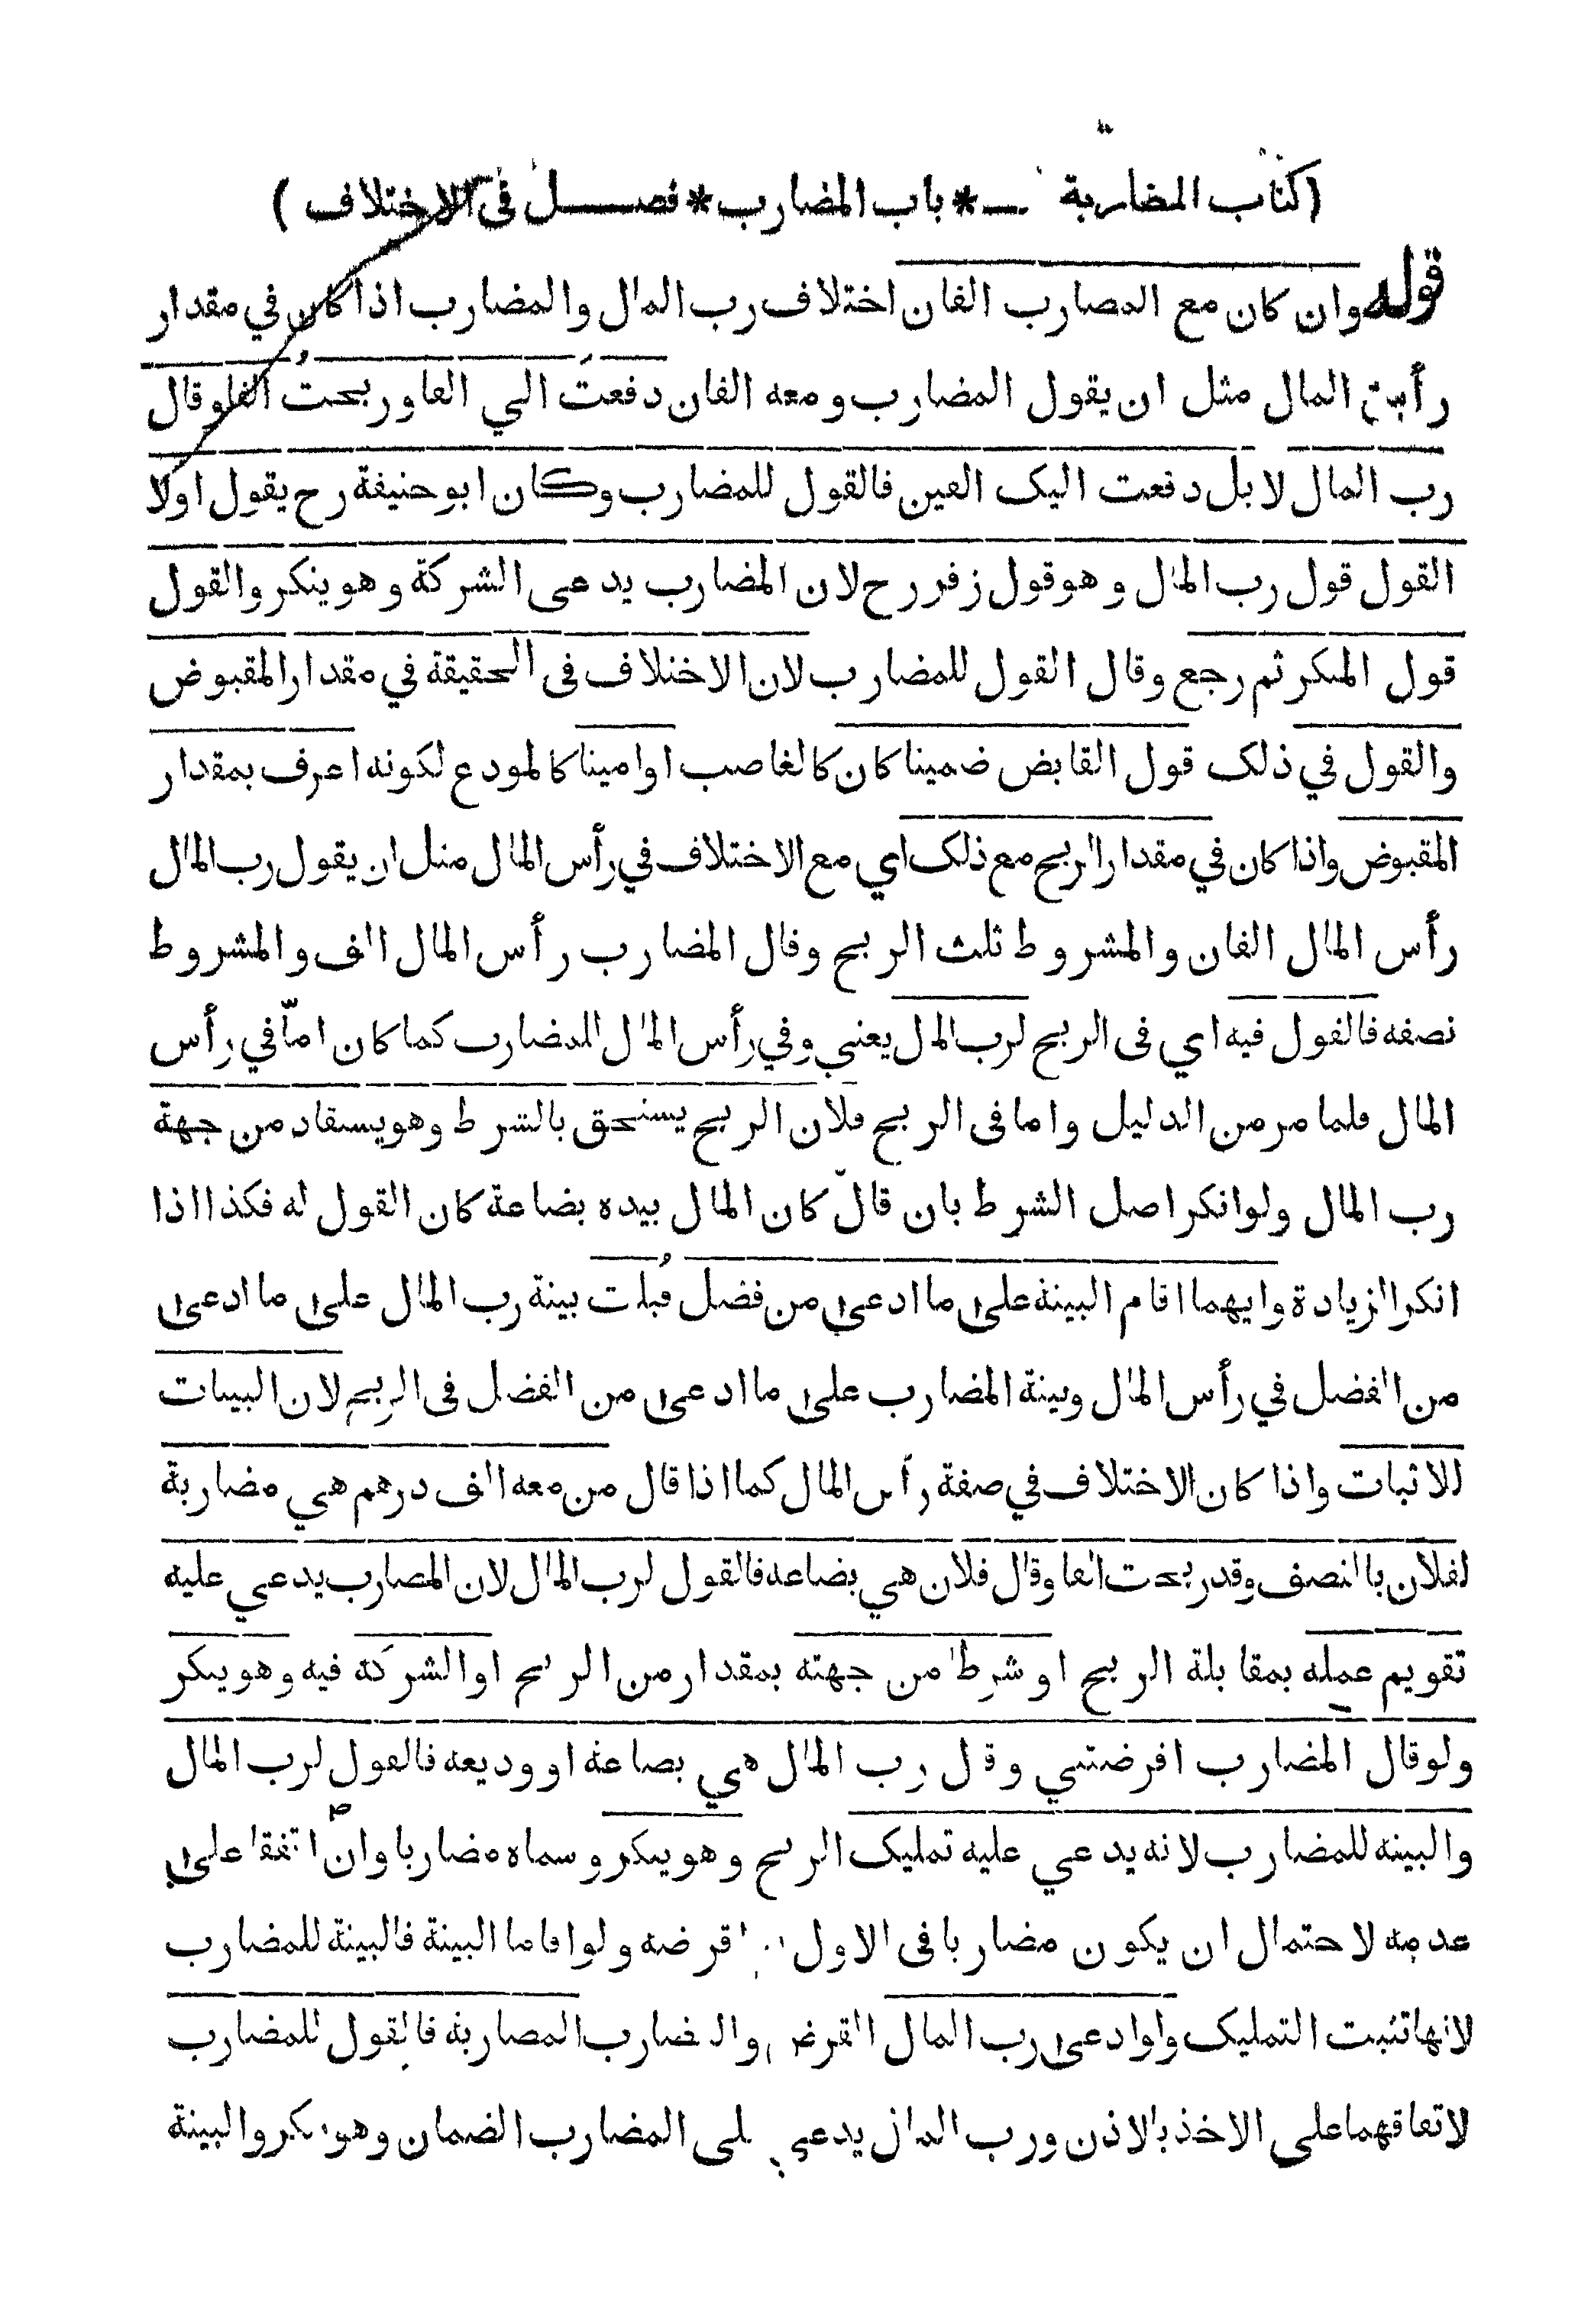 (كتاب المضاربة — * باب المضارب * فصل في الاختلاف)
قوله وان كان مع المضارب الفان اختلاف رب المال والمضارب اذا كان في مقدار
رأس المال مثل ان يقول المضارب ومعه الفان دفعتَ الي الفا وربحتُ الفا وقال
رب المال لا بل دفعت اليك الفين فالقول للمضارب وكان ابو حنيفة رح يقول اولا
القول قول رب المال وهو قول زفر رح لان المضارب يدعى الشركة وهو ينكر والقول
قول المنكر ثم رجع وقال القول للمضارب لان الاختلاف في الحقيقة في مقدار المقبوض
والقول في ذلك قول القابض ضمينا كان كالغاصب او امينا كالمودع لكونه اعرف بمقدار
المقبوض واذا كان في مقدار الربح مع ذلك اي مع الاختلاف في رأس المال مثل ان يقول رب المال
رأس المال الفان والمشروط ثلث الربح وقال المضارب رأس المال الف والمشروط
نصفه فالقول فيه اي في الربح لرب المال يعني وفي رأس المال للمضارب كما كان امّا في رأس
المال فلما مر من الدليل واما في الربح فلان الربح يستحق بالشرط وهو يستفاد من جهة
رب المال ولو انكر اصل الشرط بان قال كان المال بيده بضاعة كان القول له فكذا اذا
انكر الزيادة وايهما اقام البينة على ما ادعى من فضل قُبلت بينة رب المال على ما ادعى
من الفضل في رأس المال وبينة المضارب على ما ادعى من الفضل في الربح لان البينات
للاثبات واذا كان الاختلاف في صفة رأس المال كما اذا قال من معه الف درهم هي مضاربة
لفلان بالنصف وقد ربحت الفا وقال فلان هي بضاعة فالقول لرب المال لان المضارب يدعي عليه
تقويم عمله بمقابلة الربح او شرطا من جهته بمقدار من الربح او الشركة فيه وهو ينكر
ولو قال المضارب اقرضتني وقال رب المال هي بضاعة او وديعة فالقول لرب المال
والبينة للمضارب لانه يدعي عليه تمليك الربح وهو ينكر وسماه مضاربا وان اتفقا على
عدمه لاحتمال ان يكون مضاربا في الاول اقرضه ولو اقاما البينة فالبينة للمضارب
لانها تثبت التمليك ولو ادعى رب المال القرض والمضارب المضاربة فالقول للمضارب
لاتفاقهما على الاخذ بالاذن ورب المال يدعي على المضارب الضمان وهو ينكر والبينة